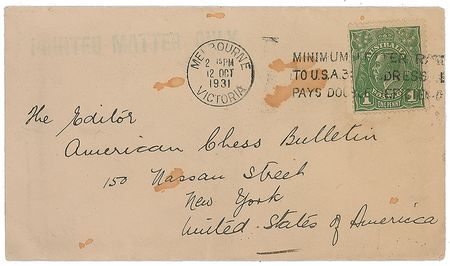 PRINTED MATTER ONLY
MELBOURNE
2 15 PM
12 OCT
1931
VICTORIA
MINIMUM
TO U.S.A. 3D DRESS
PAYS DOU
AUSTRALIA
1 1
ONE PENNY
The Editor
American Chess Bulletin
150 Nassau Street
New York
United States of America